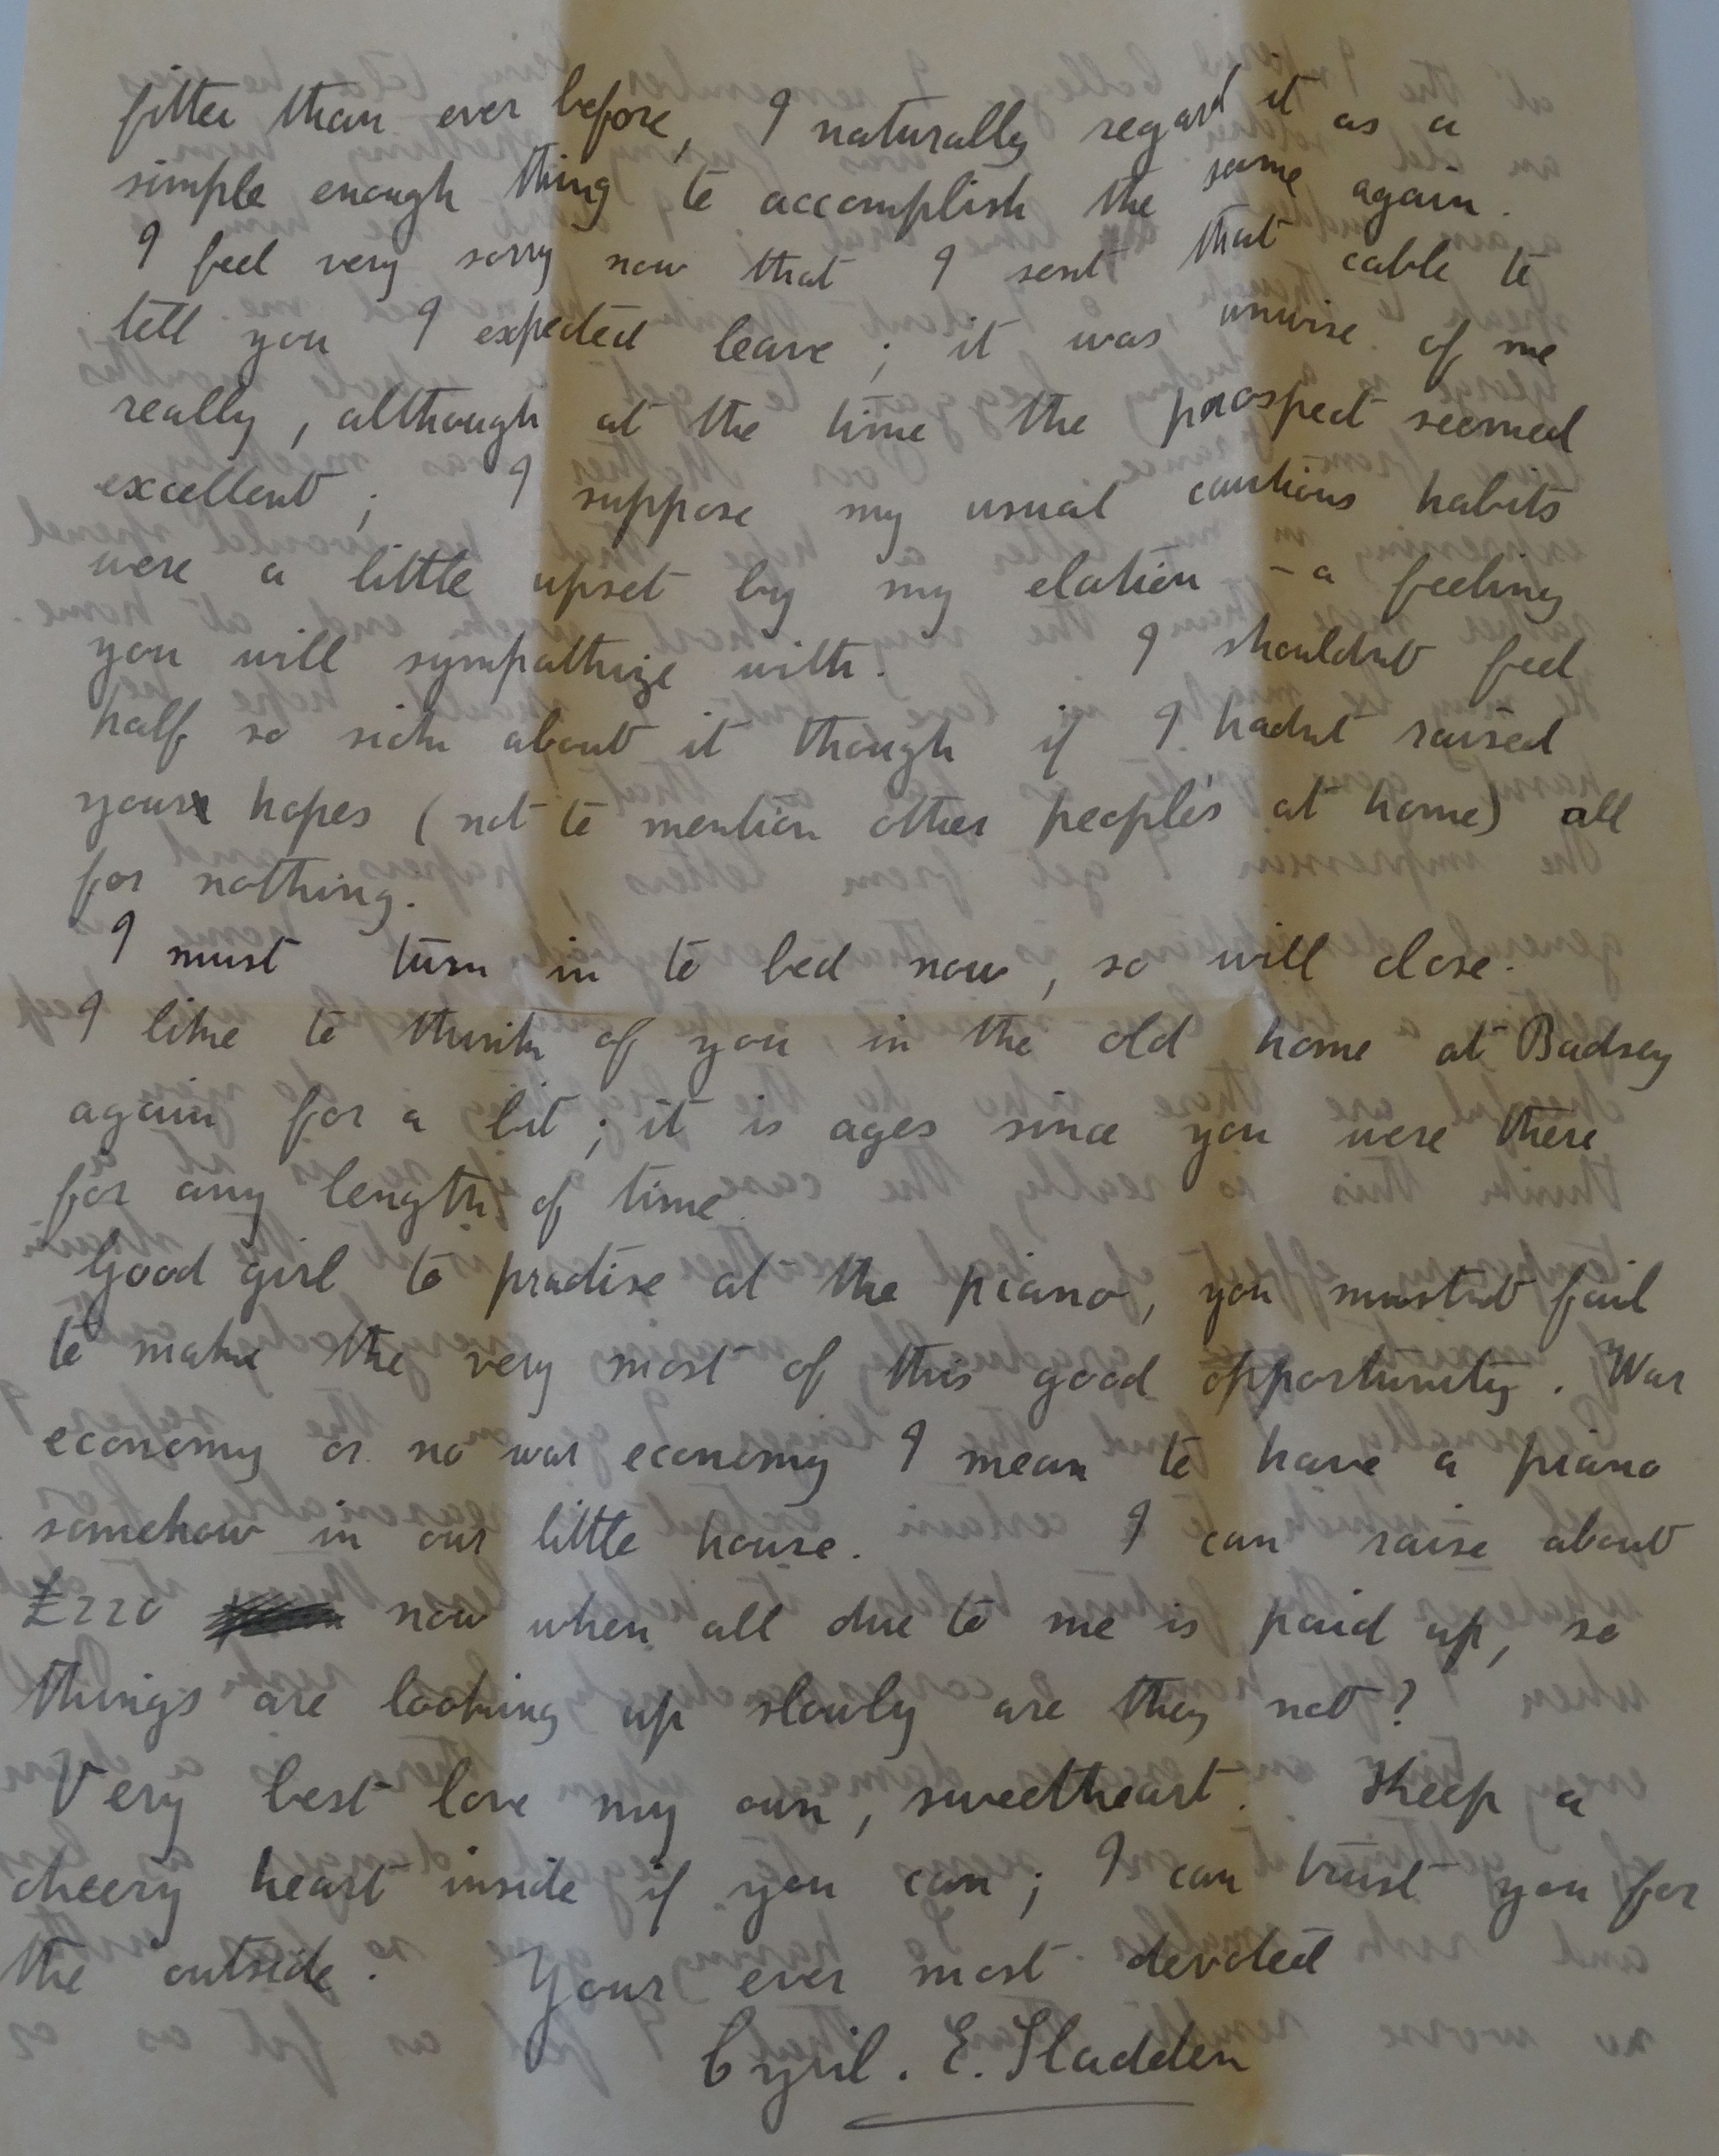 fitter than ever before, I naturally regard it as a
simple enough thing to accomplish the same again.
I feel very sorry now that I sent that cable to
tell you I expected leave; it was unwise of me
really, although at the time the prospect seemed
excellent; I suppose my usual cautious habits
were a little upset by my elation – a feeling
you will sympathize with. I shouldnt feel
half so sick about it though if I hadnt raised
your hopes (not to mention other people's at home) all
for nothing.
I must turn in to bed now, so will close.
I like to think of you in the old home at Badsey
again for a bit; it is ages since you were there
for any length of time.
Good girl to practise at the piano, you mustnt fail
to make the very most of this good opportunity. War
economy or no war economy I mean to have a piano
somehow in our little house. I can raise about
£220 now when all due to me is paid up, so
things are looking up slowly are they not?
Very best love my own, sweetheart. Keep a
cheery heart inside if you can; I can trust you for
the outside. Your ever most devoted
Cyril. E. Sladden